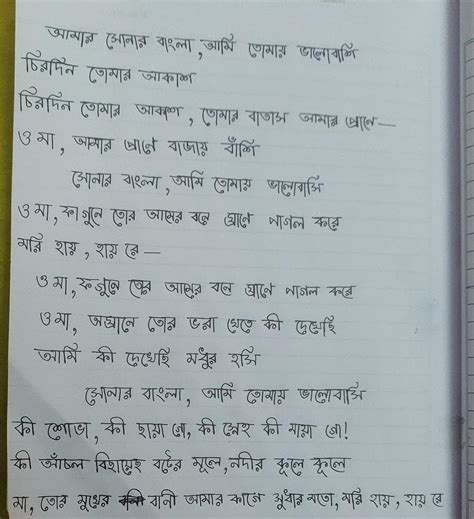 আমার সোনার বাংলা, আমি তোমার ভালোবাসি
চিরদিন তোমার আকাশ
চিরদিন তোমার আকাশ, তোমার বাতাস আমার প্রানে—
ও মা, আমার প্রাণে বাজায় বাঁশি
সোনার বাংলা, আমি তোমায় ভালোবাসি
ও মা, ফাগুনে তোর আমের বনে ঘ্রানে পাগল করে
মরি হায়, হায় রে—
ও মা, ফাগুনে তোর আমের বনে ঘ্রানে পাগল করে
ও মা, অঘ্রানে তোর ভরা খেতে কী দেখেছি
আমি কী দেখেছি মধুর হাসি
সোনার বাংলা, আমি তোমায় ভালোবাসি
কী শোভা, কী ছায়া গো, কী স্নেহ কী মায়া গো!
কী আঁচল বিছায়েছ বটের মূলে, নদীর কূলে কূলে
মা, তোর মুখের বানী আমার কানে সুধার মতো, মরি হায়, হায় রে